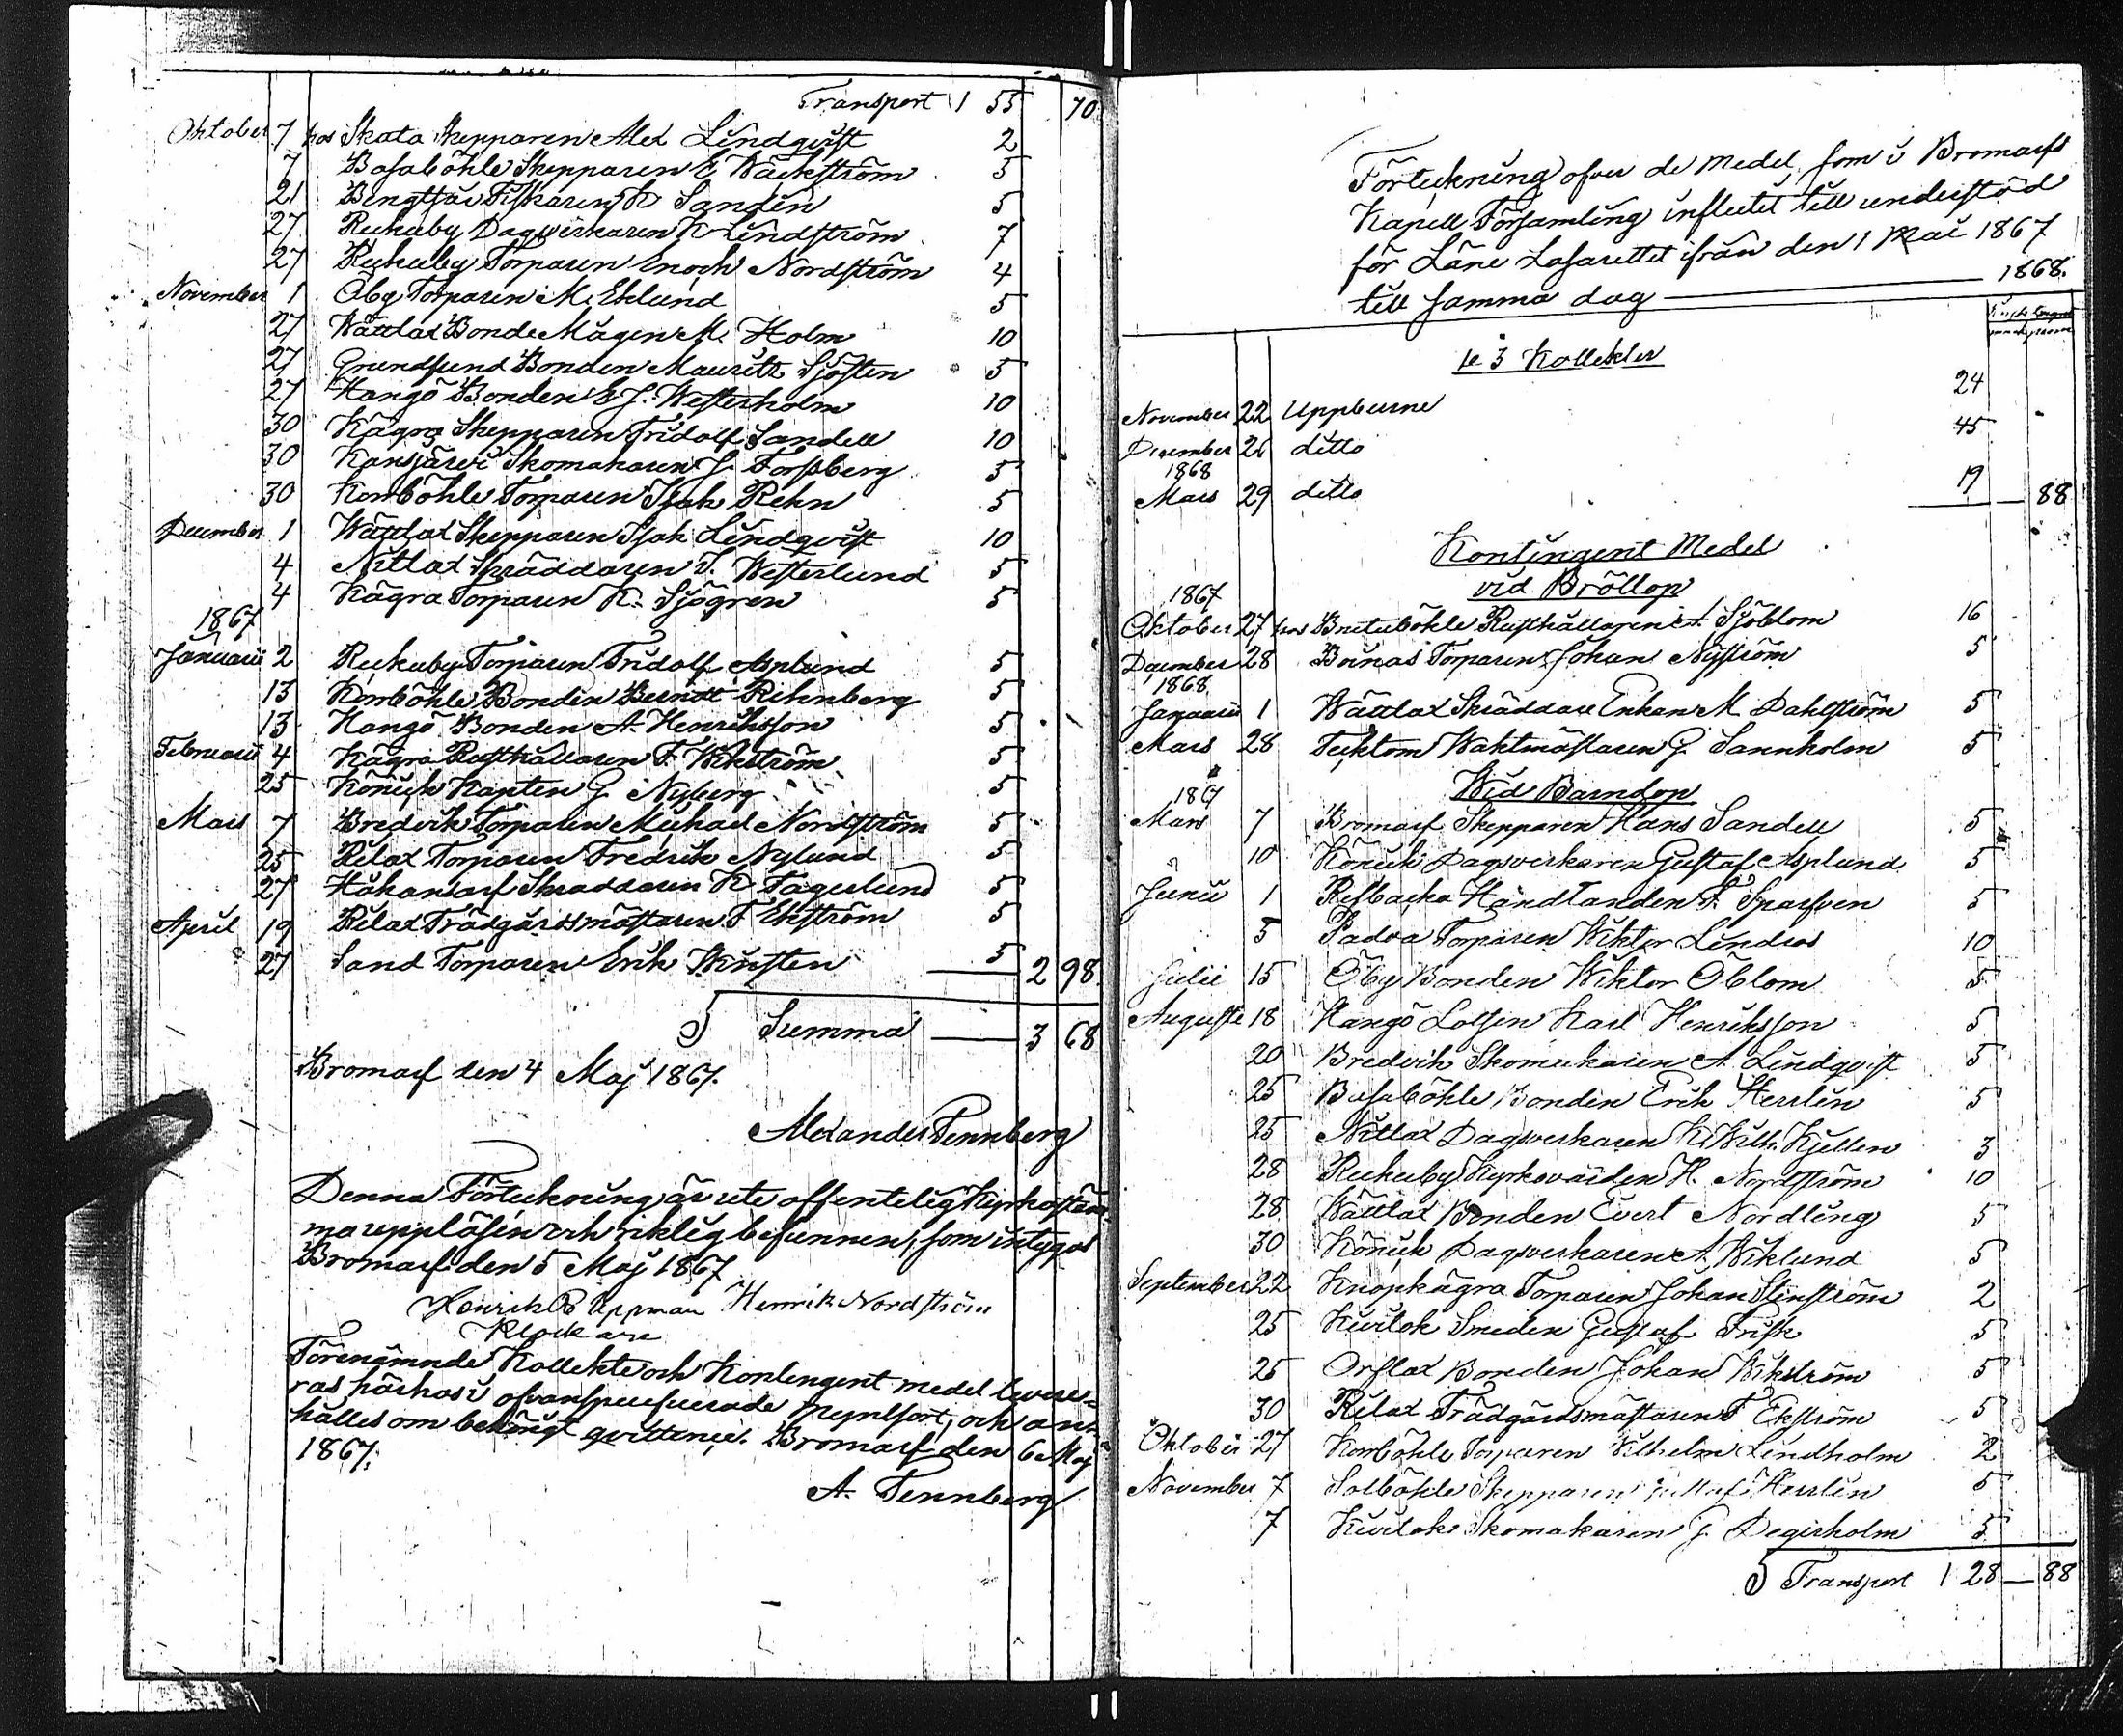 Transport 1 55 70
Oktober 7 hos Skata Skepparen Alex Lindqvist 2
7 Basaböhle Skepparen E Wäckström 5
21 Bengtsår Fiskaren K Sandin 5
27 Rekuby Dagsverkaren K Lindström 7
27 Rekuby Torparen Enoch Nordström 4
November 1 Öby Torparen M. Eklund 5
27 Wättlax Bonde Mågen M. Holm 10
27 Grundsund Bonden Mauritz Sjösten 5
27 Hangö Bonden E J. Westerholm 10
30 Kägra Skepparen Fridolf Sandell 10
30 Kansjärvi Skomakaren J. Forssberg 5
30 Korsböhle Torparen Isak Rehn 5
December 1 Wättlax Skepparen Isak Lindqvist 10
4 Nitlax Skräddaren I. Westerlund 5
4 Kägra Torparen K. Sjögren 5
1867
Januarii 2 Rekuby Torparen Fridolf Asplund 5
13 Korsböhle Bonden Berndt Rehnberg 5
13 Hangö Bonden A. Henriksson 5
Februarii 4 Kägra Rusthållaren F. Wikström 5
25 Könick Kanten G Nyberg 5
Mars 7 Bredvik Torparen Michael Nordström 5
25 Rilax Torparen Fredrik Nylund 5
27 Håkansarf Skräddaren K Fagerlund 5
April 19 Rilax Trädgårdsmästaren F Ekström 5
27 Sand Torparen Erik Wirsten 5 2 98
S Summa 3 68
Bromarf den 4 Maj 1867.
Alexander Tennberg
Denna Förteckning är ute offentelig Kyrkostäm-
ma uppläsen och riktig befunnen, som intygas
Bromarf den 5 Maj 1867
Henrik Uppman Henrik Nordström
Klockare
Förenämnde Kollekte och Kontingent medel levere-
ras härhos i ofvanspecificerade myntsort, och an-
hålles om behörigt qvittence. Bromarf den 6 Maj
1867.
A. Tennberg
Förteckning öfver de medel, som i Bromarfs
Kapell Församling influtit till understöd
för Läne Lasarettet ifrån den 1 Maii 1867
till samma dag 1868.
le 3 Kollekter
November 22 Uppburne 24
December 26 ditto 45
1868
Mars 29 ditto 19 88
Kontingent Medel
vid Bröllop
1867
Oktober 27 hos Bretaböhle Rusthållaren A. Sjöblom 16
December 28 Boinäs Torparen Johan Nyström 5
1868
Januarii 1 Wättlax Skräddare Enkan M Dahlström 5
Mars 28 Tecktom Waktmästaren G. Sannholm 5
Wid Barndop
1867
Mars 7 Bromarf Skepparen Hans Sandell 5
10 Könick Dagsverkaren Gustaf Asplund 5
Junii 1 Refbacka Handlanden F. Sparfven 5
5 Padva Torparen Wiktor Lindroos 10
Julii 15 Öby Bonden Wiktor Öblom 5
Augusti 18 Hangö Lotsen Karl Henriksson 5
20 Bredvik Skomakaren A Lindqvist 5
25 Basaböhle Bonden Erik Herrlin 5
25 Nitlax Dagsverkaren K Wilh. Kjellen 3
28 Rekuby Kyrkovärden H. Nordström 10
28 Wättlax Bonden Evert Nordling 5
30 Könick Dagsverkaren A. Wiklund 5
September 22 Knopkägra Torparen Johan Stenström 2
25 Kivitok Smeden Gustaf Frisk 5
25 Orslax Bonden Johan Wikström 5
30 Rilax Trädgårdsmästaren F Ekström 5
Oktober 27 Korsböhle Torparen Wilhelm Lindholm 2
November 7 Solböhle Skepparen Gustaf Herrlin 5
7 Kivitok Skomakaren G. Degerholm 5
S Transport 1 28 88